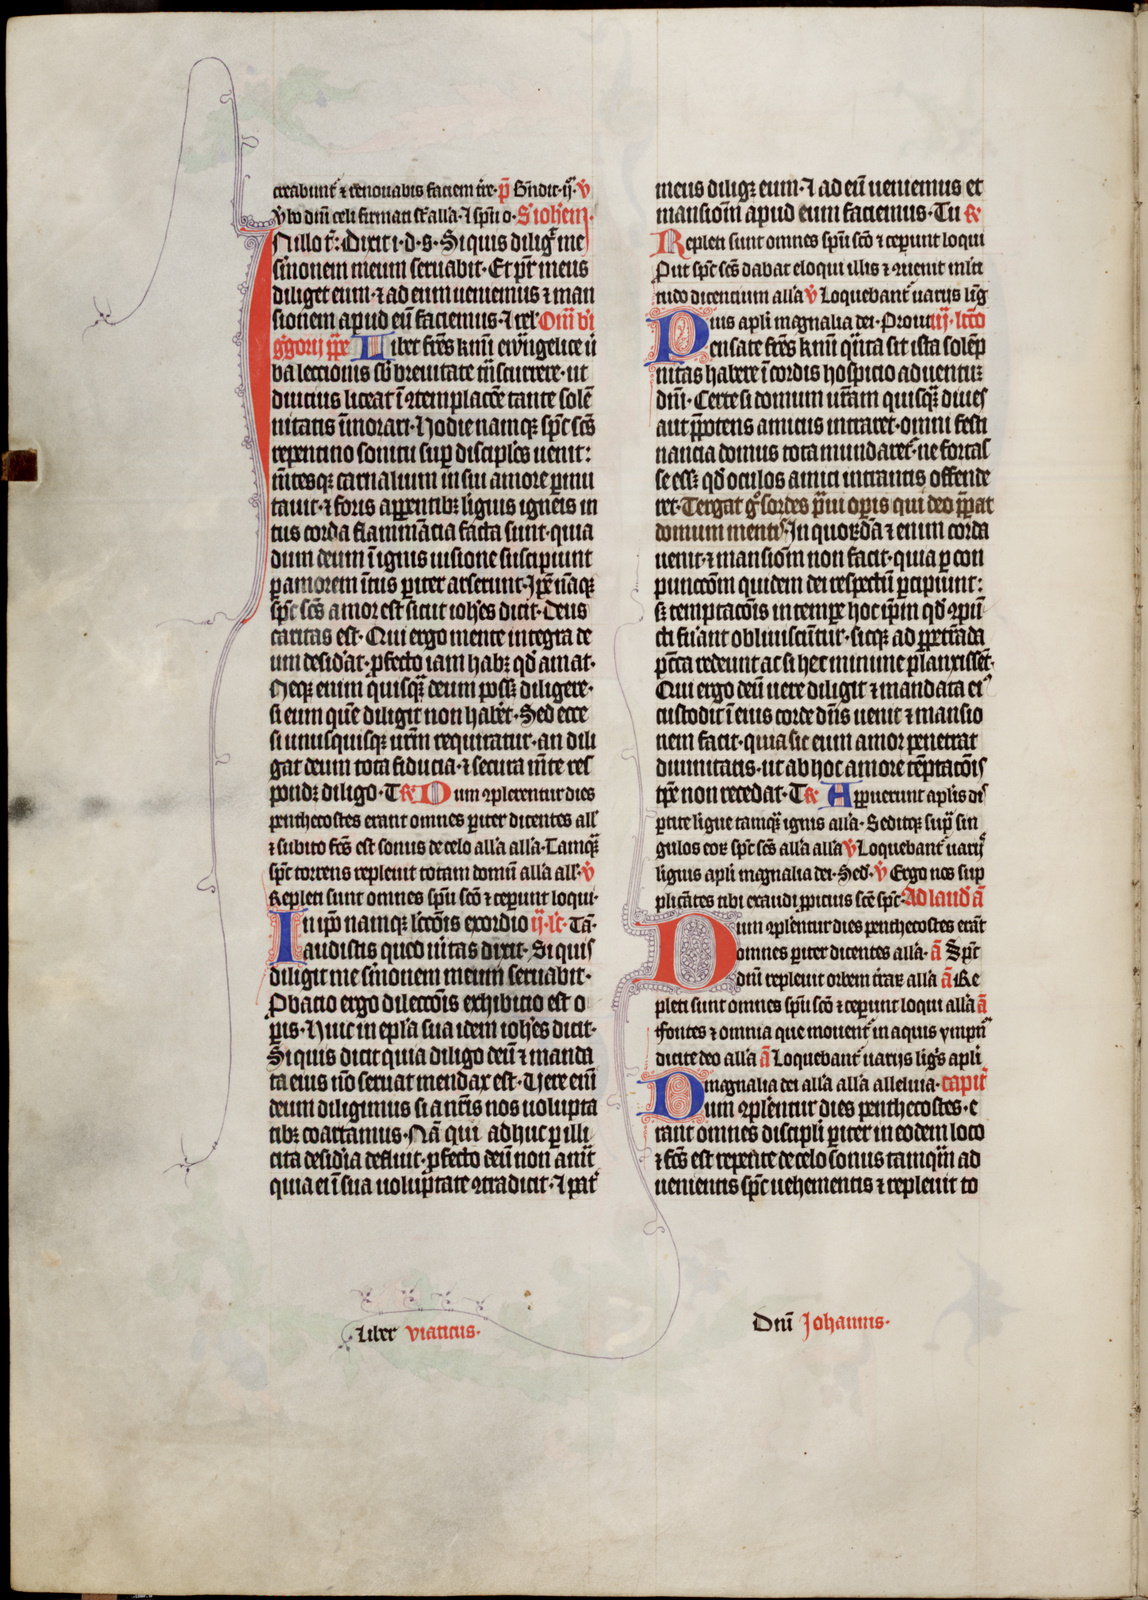 creabunt᷑ ⁊ renouabis faciem t̄re· p̄ Bn̄dic· ij· v̄
v̄bo dn̄i celi firmati st᷑ all'a· ⁊ sp̄u o· S iohem̄·
N illo t̄: Dixit i· d· s· Siquis dilig᷑ me
s̄monem meum seruabit· Et pr̄ meus
diliget eum· ⁊ ad eum ueniemus ⁊ man
sionem apud eū faciemus· ⁊ rel' Om̄ b'i
g̓gorij pp̄e Libet fr̄es km̄i ew̄ngelice ū
ba lectionis sb̄ breuitate tn̄scurrere· ut
diucius liceat ī ꝯtemplacōe tante solē
nitatis īmorari· Hodie namqꝫ sp̄c sc̄s
repentino sonitu sup̄ disciplo̓s uenit:
mētesqꝫ carnalium in sui amore ꝑmu
tauit· ⁊ foris appen̄tibꝫ liguis igneis in
tus corda flammācia facta sunt· quia
dum deum ī ignis uisione suscipiunt
ꝑ amorem ītus ꝑiter arserunt· Ip̄e n̄aqꝫ
sp̄c sc̄s amor est sicut ioh̄es dicit· Deus
caritas est· Qui ergo mente integra de
um desid̓at· ꝓfecto iam habꝫ qd̓ amat·
Neqꝫ enim quisqꝫ̄ deum possꝫ diligere·
si eum quē diligit non habet· Sed ecce
si unusquisqꝫ ur̄m requiratur· an dili
gat deum tota fiducia· ⁊ secura mēte res
pondꝫ diligo· T R̄ Dum ꝯplerentur dies
penthecostes erant omnes ꝑiter dicentes all'
⁊ subito fc̄s est sonus de celo all'a all'a· Tamqꝫ̄
sp̄c torrens repleuit totam domū all'a all'· v̄
Repleti sunt omnes sp̄u sc̄o ⁊ ceperunt loqui·
In ip̄o namqꝫ lc̄cōis exordio ij· lc̄· Ta·
audistis quod ūitas dixit· Si quis
diligit me s̄monem meum seruabit·
Ꝓbacio ergo dileccōis exhibicio est o
ꝑis· Hinc in epl'a sua idem ioh̄es dicit·
Si quis dicit quia diligo deū ⁊ manda
ta eius nō seruat mendax est· Uere enī
deum diligimus si a nr̄is nos uolupta
tibꝫ coartamus· Nā qui adhuc ꝑ illi
cita desid̓ia defluit· ꝓfecto deū non amāt
quia ei ī sua uolūptate ꝯtradicit· ⁊ pat᷑
meus diligꝫ eum· ⁊ ad eū ueniemus et
mansiom̄ apud eum faciemus· Tu R̄
Repleti sunt omnes sp̄u sc̄o ⁊ ceperunt loqui
Put sp̄c sc̄s dabat eloqui illis ⁊ ꝯuenit ml'ti
tudo dicentium all'a v̄ Loquebant᷑ uarijs lig̅
Pius apl'i magnalia dei· Prout iij· lcc̄o
Pensate fr̄es km̄i qn̄ta sit ista solēp
nitas habere ī cordis hospicio aduentū
dn̄i· Certe si domum ur̄am quisqꝫ̄ diues
aut p̄potens amicus intraret· omni festi
nancia domus tota mundaret᷑· ne forsi
se essꝫ qd̓ oculos amici intrantis offende
ret· Tergat g̊ sordes p̄ui oꝑis qui deo p̄ꝑat
domum mentis· In quordā ⁊ enim corda
uenit· ⁊ mansiom̄ non facit· quia ꝑ con
punccōm quidem dei respectū ꝑcipiunt:
sꝫ temptacōis in temp̄e hoc ip̄m qd̓ ꝯpūn
cti fu̓ant obliuiscūtur· sicqꝫ ad ꝑpetn̄da
pc̄ca redeunt ac si hec minime planxisset̄·
Qui ergo deū uere diligit ⁊ mandata ei᷒
custodit ī eius corde dn̄s uenit ⁊ mansio
nem facit· quia sic eum amor penetrat
diuinitatis· ut ab hoc amore tēptacōis
tp̄e non recedat· T R̄ Apparuerunt aplis di
ꝑtite ligue tamqꝫ̄ ignis all'a· Seditqꝫ sup̄ sin
gulos eoꝝ sp̄c sc̄s all'a all'a v̄ Loquebant᷑ uarijs
liguis apl'i magnalia dei· Sed· v̄ Ergo nos sup
plicātes tibi exaudi ꝓpicius sc̄e sp̄c· Ad laud̓ ā
Dum ꝯplentur dies penthecostes erāt
omnes ꝑiter dicentes all'a· ā Sp̄c
dn̄i repleuit orbem t̄raꝝ all'a ā Re
pleti sunt omnes sp̄u sc̄o ⁊ ceperunt loqui all'a ā
ffontes ⁊ omnia que mouent᷑ in aquis ympn̄
dicite deo all'a ā Loquebant᷑ uarijs lig̅s apl'i
magnalia dei all'a all'a alleluia· capit᷑
Dum ꝯplent᷑ur dies penthecostes· e
rant omnes discipl'i ꝑiter in eodem loco
⁊ fc̄s est repēte de celo sonus tamqm̄ ad
uenientis sp̄c uehementis ⁊ repleuit to
Liber viaticus·
Dn̄i Johannis·